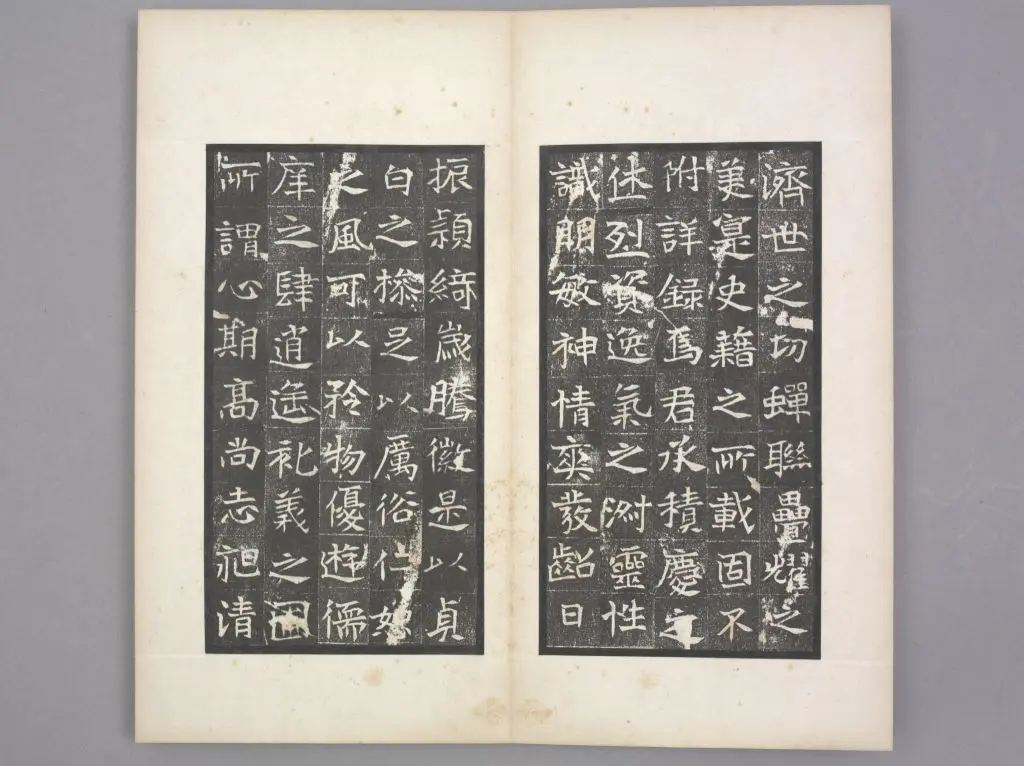 濟世之功蟬聯疊耀之
美寔史藉之所載固不
附詳録焉君承積慶之
休烈資逸氣之渊靈性
識明敏神情爽發齠日
振穎綺歲騰徽是以貞
白之操足以厲俗仁恕
之風可以矜物優遊儒
庠之肆逍遥礼義之
所謂心期髙尚志挹清